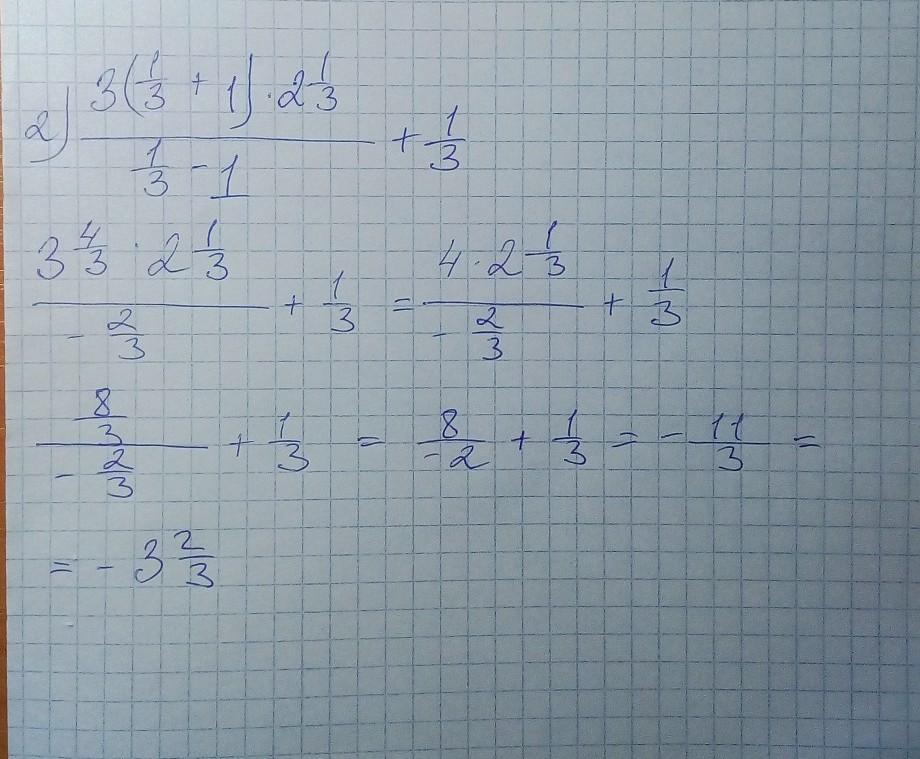 2) \frac{3(\frac{1}{3} + 1) \cdot 2\frac{1}{3}}{\frac{1}{3} - 1} + \frac{1}{3}
\frac{3\frac{4}{3} \cdot 2\frac{1}{3}}{-\frac{2}{3}} + \frac{1}{3} = \frac{4 \cdot 2\frac{1}{3}}{-\frac{2}{3}} + \frac{1}{3}
\frac{\frac{8}{3}}{-\frac{2}{3}} + \frac{1}{3} = \frac{8}{-2} + \frac{1}{3} = -\frac{11}{3} =
= -3\frac{2}{3}